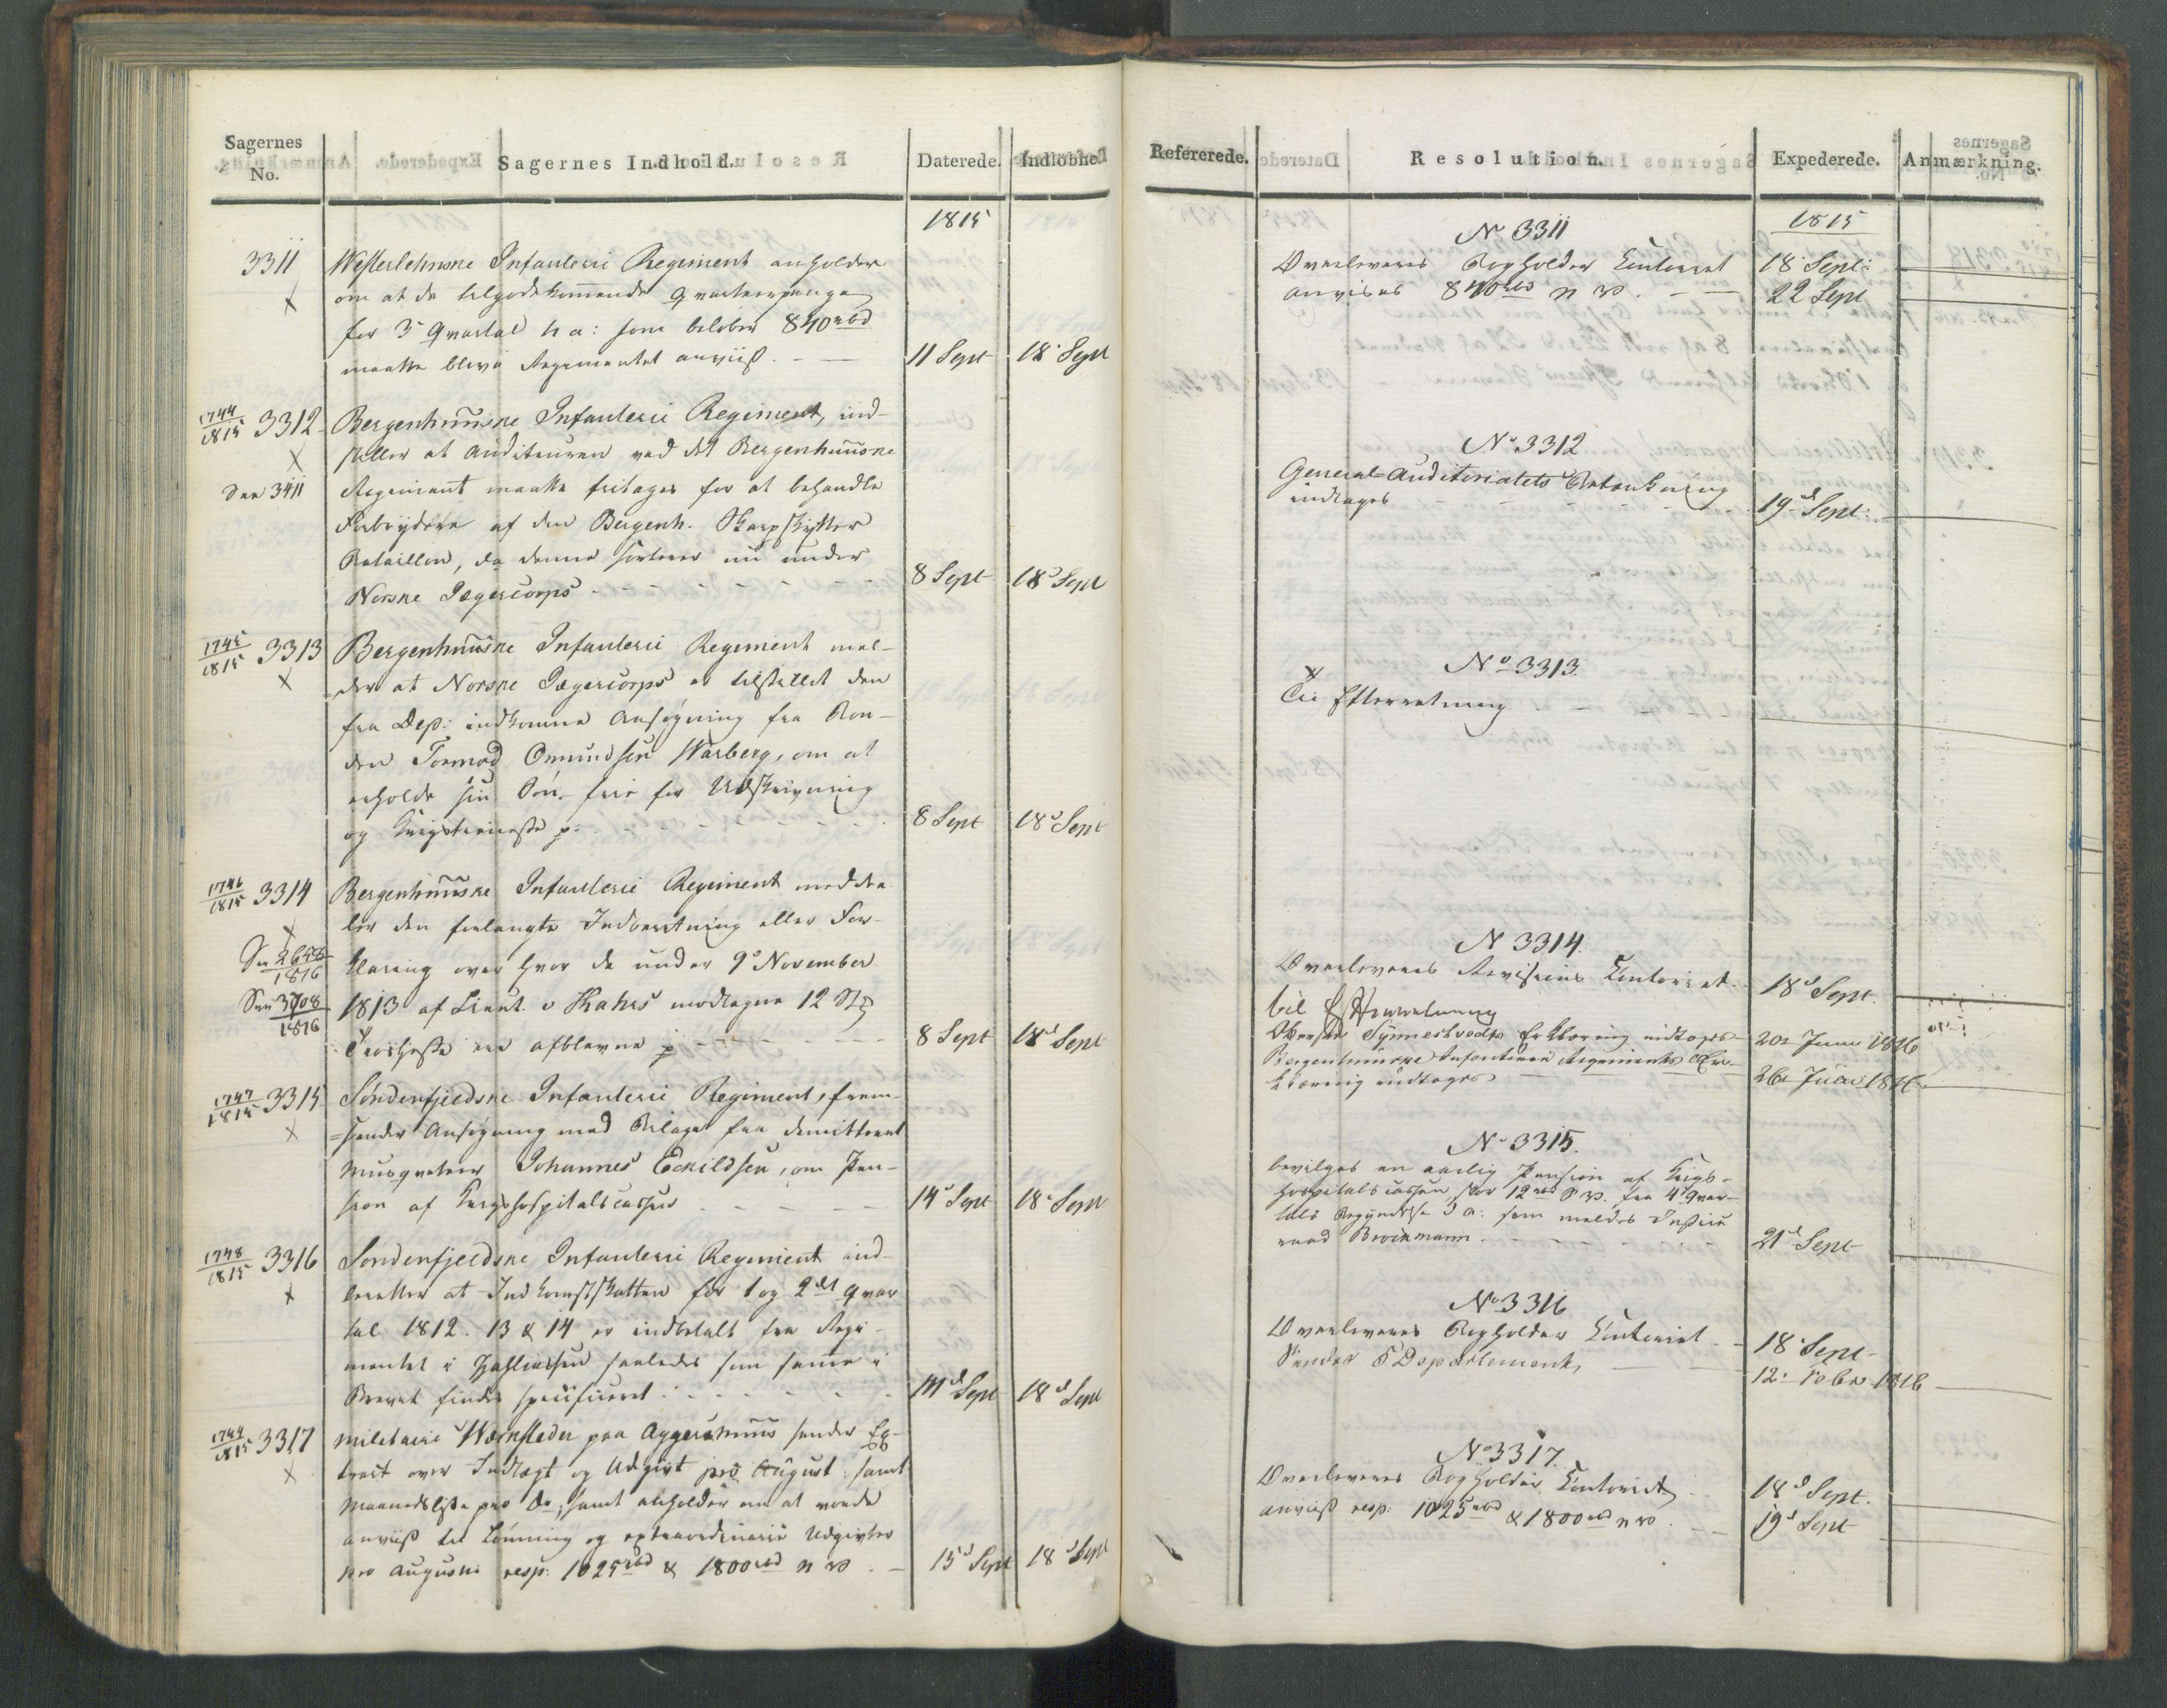 Sagernes
No.
Sagernes Indhold.
Daterede.
Indløbne
1815
3311
Westerlehnske Infanterie Regiment anholder
om at de tilgodekommende Qvarteerpenge
for 3 Qvartal h a: som beløber 840 rbd
maatte blive Regimentet anviist
11 Sept
18 Sept
1744
1815
3312
Bergenhuuske Infanterie Regiment, ind-
stiller at Auditeuren ved det Bergenhuuske
See 3411
Regiment maatte fritages for at behandle
Forbrydere af den Bergenh. Skarpskytter
Bataillon, da denne sorterer nu under
Norske Jægercorps
8 Sept
18 Sept
1745
1815
3313
Bergenhuuske Infanterie Regiment mel-
der at Norske Jægercorps er tilstillet den
fra Dep: indkomne Ansøgning fra Bon-
den Tormod Omundsen Warberg, om at
erholde sin Søn frie for Udskrivning
og Krigstieneste p:
8 Sept
18 Sept
1746
1815
3314
Bergenhuuske Infanterie Regiment medde
ler den forlangte Indberetning eller For-
1816
klaring over hvor de under 9 November
See 3708
1816
1813 af Lieut. v Krahes modtagne 12 St
ere afblevne p
8 Sept
18 Sept
1747
1815
3315
Søndenfjeldske Infanterie Regiment, frem-
sender Ansøgning med Bilage fra demitteret
Musqueteer Johannes Eckildsen, om Pen-
sion af Krigshospitalscassen
14 Sept
18 Sept
1748
1815
3316
Søndenfjeldske Infanterie Regiment ind-
beretter at Indkomstskatten for 1 og 2det Qvar
tal 1812. 13 & 14 er indbetalt fra Regi-
mentet i Zahlcassen saaledes som samme i
Brevet findes specificeret
14 Sept
18 Sept
1749
1815
3317
Militaire Varnsteder paa Aggershuus sender Ex-
tract over Indtægt og Udgivt pro August samt
Maanedsliste pro Do, samt anholder om at vorde
anviist til Lønning og extraordinaire Udgivter
pro Augusti resp: 1025 rbd & 1800 rbd n v
15 Sept
18 Sept
Refererede.
Resolution.
Expederede.
Anmærkning.
1815
No 3311
Overleveres Bogholder Contoiret
18 Sept:
anvises 840 rbd n v.
22 Sept
No 3312
General-Auditoriatets Betænkning
indtages
19 Sept:
No 3313.
Til Efterretning
No 3314.
Overleveres Revisions Contoiret
18 Sept.
til Efterretning
Oberst Synnestvedts Erklæring indtages
20 Juni 1816
Bergenhuuske Infanterie Regiments Er-
klæring indtages
26 Juni 1816
No 3315.
bevilges en aarlig Pension af Krigs-
hospitalscassen stor 12 rbd S v. fra 4 Qvar-
tals Begyndelse d a: som meldes Justice
raad Brockmann
21 Sept
No 3316
Overleveres Bogholder Contoiret
18 Sept
Sendes 5 Departement,
12 Febr 1816
No 3317.
Overleveres Bogholder Contoiret
18 Sept.
anviist resp: 1025 rbd & 1800 rbd n v
19 Sept